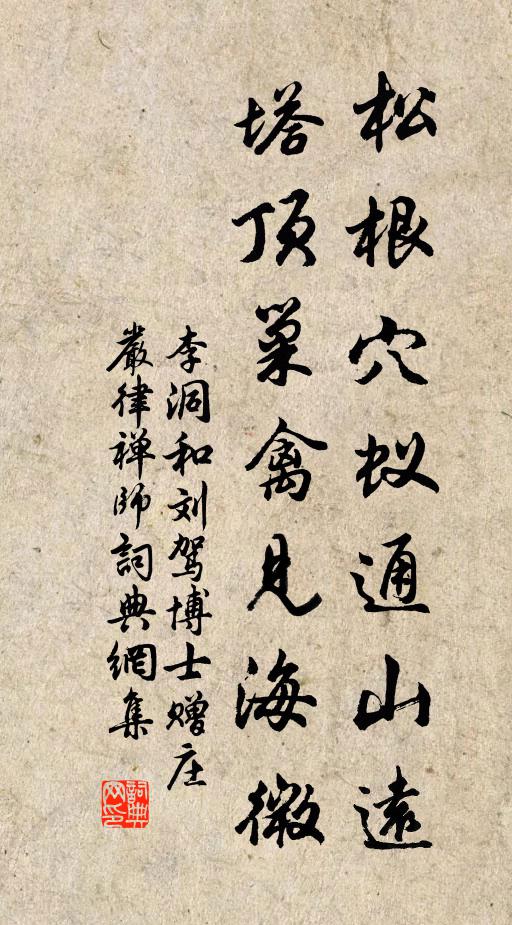 松根穴蚁通山遠
塔顶巢禽見海微
李洞和刘驾博士赠庄
嚴律禅师詞典網集
詞典
网印